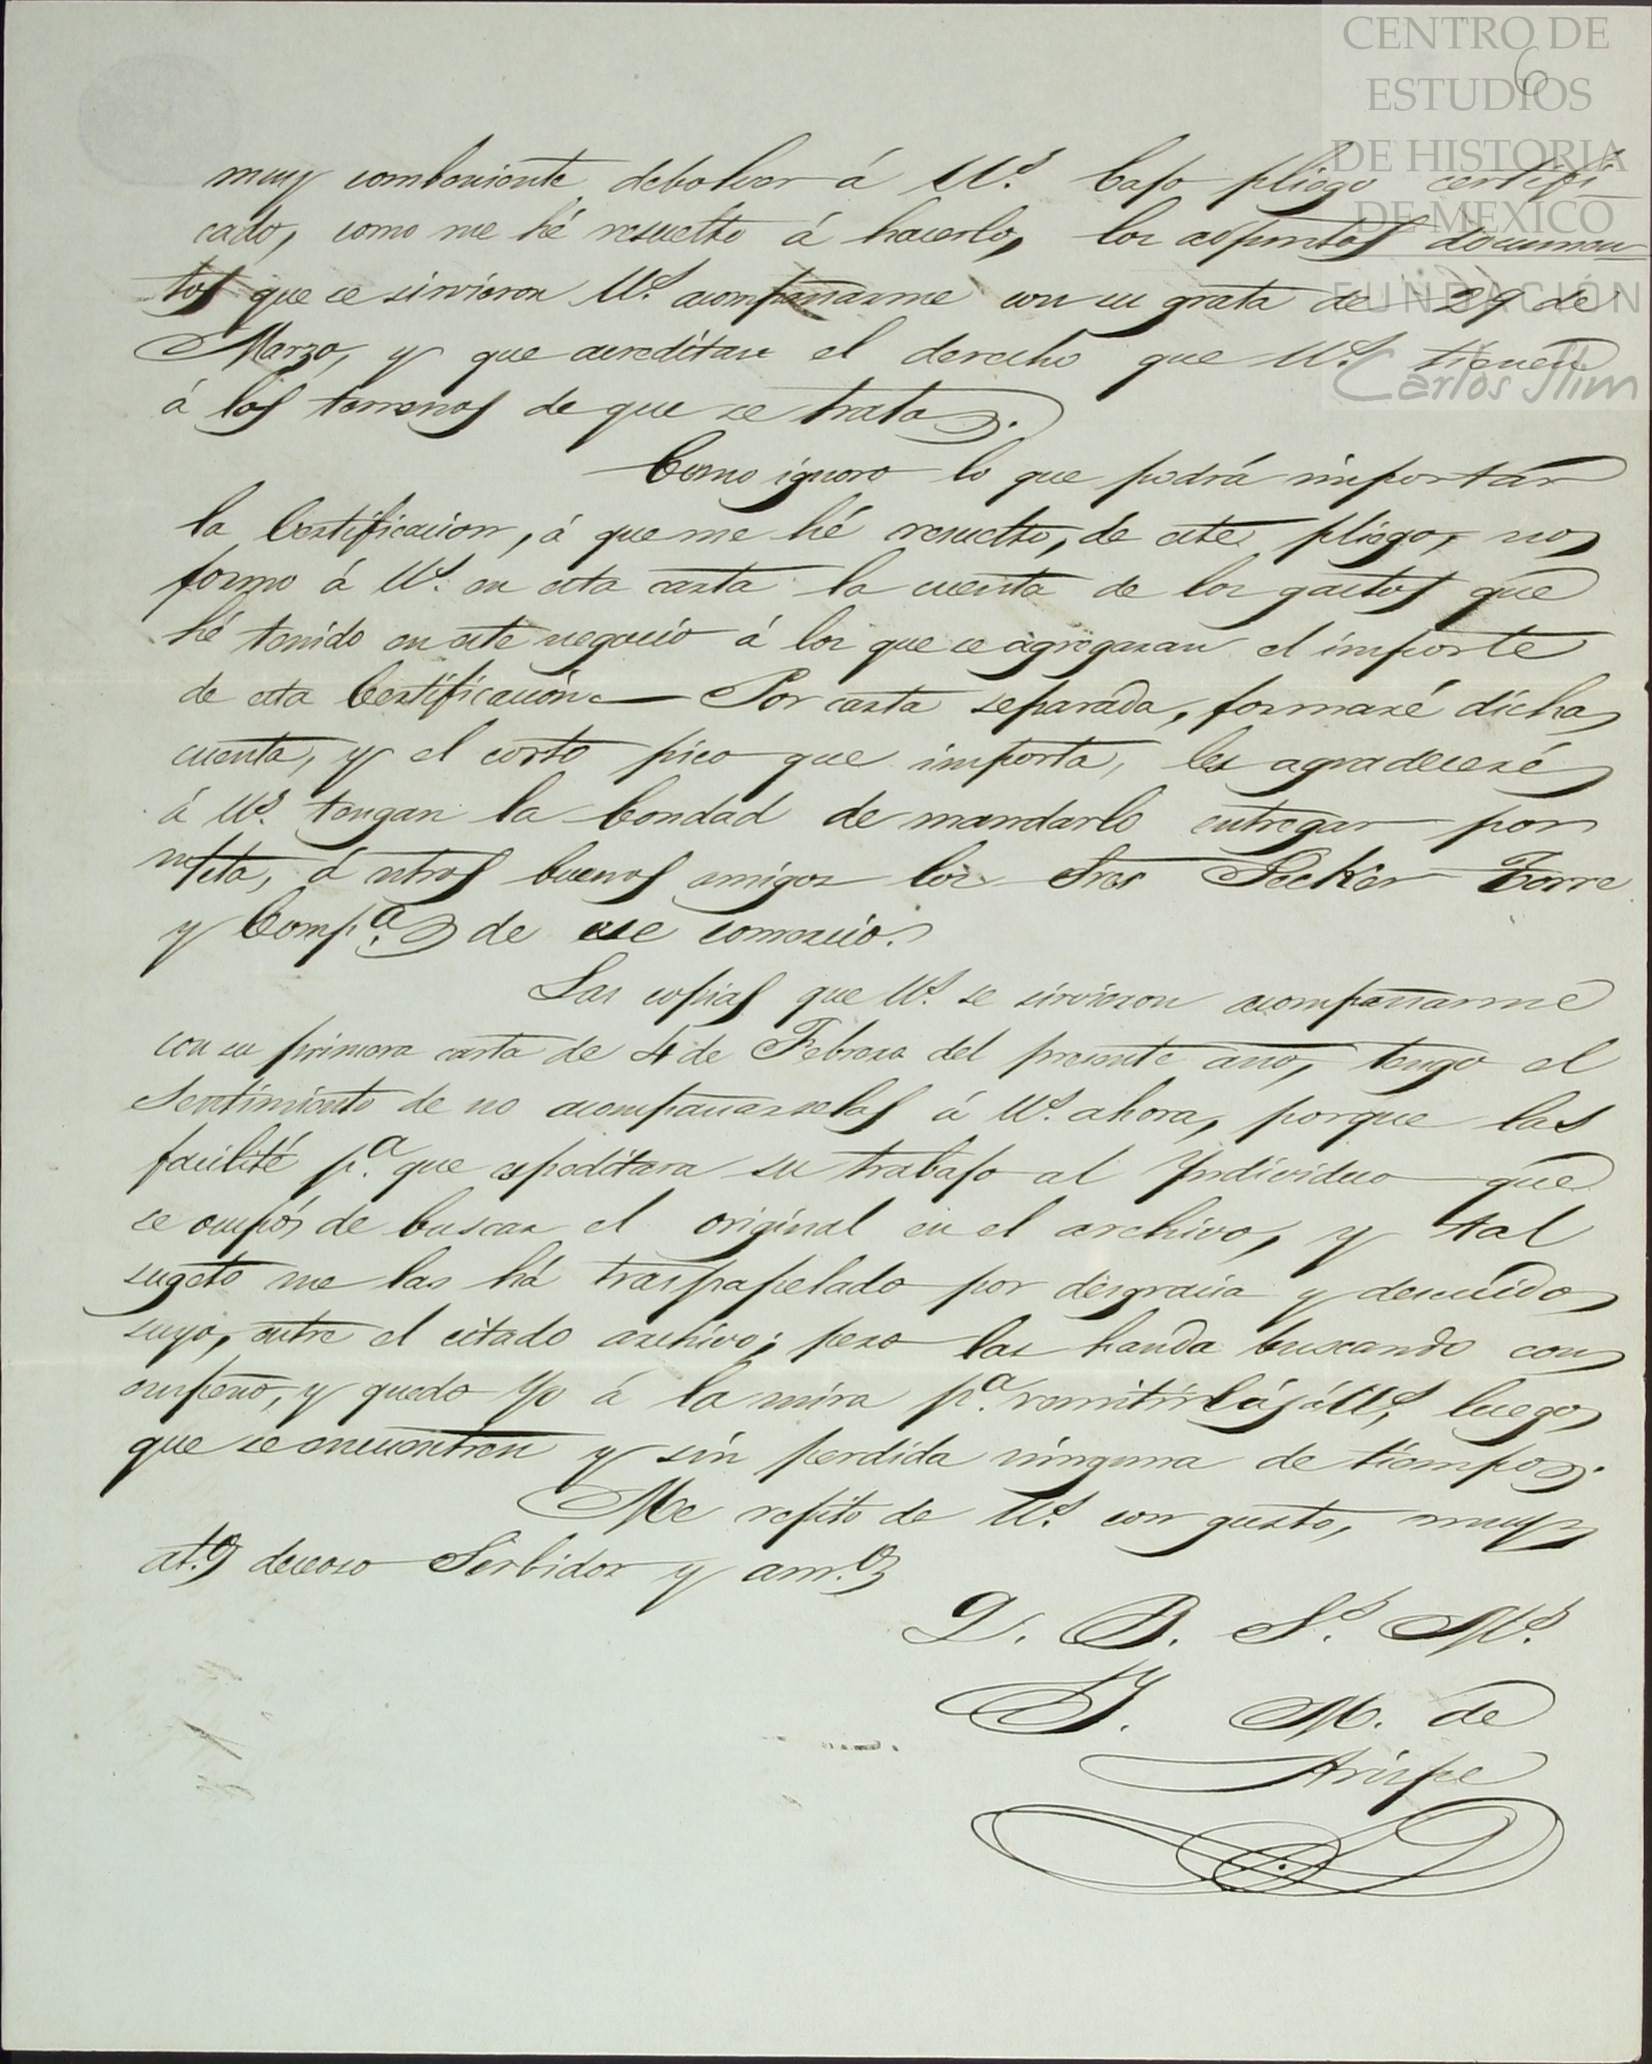 CENTRO DE
ESTUDIOS
DE HISTORIA
DE MEXICO
FUNDACIÓN
Carlos Slim
6
muy comboniente debolver á Us. bajo pliego certifi
cado, como me hé resuelto á hacerlo, los adjuntos documen
tos que se sirvieron Us. acompañarme con su grata de 29 de
Marzo, y que acreditan el derecho que Us. tienen
á los terrenos de que se trata.
Como ignoro lo que podrá importar
la Certificacion, á que me hé resuelto, de este pliego, no
formo á Us. en esta carta la cuenta de los gastos que
hé tenido en este negocio á los que se agregaran el importe
de esta Certificacion. Por carta separada, formaré dicha
cuenta, y el corto pico que importa, les agradeceré
á Us. tengan la bondad de mandarlo entregar por
á ntros buenos amigos los Sres Torre
y Compa. de ese comercio.
Las copias que Us. se sirvieron acompañarme
con su primera carta de 4 de Febrero del presente año, tengo el
sentimiento de no acompañarselas á Us. ahora, porque las
facilité pa. que espeditara su trabajo al Yndividuo que
se ocupó de buscar el original en el archivo, y tal
sugeto me las há traspapelado por desgracia y descuido
suyo, entre el citado archivo; pero las handa buscando con
empeño, y quedo Yo á la mira pa. remitirlas á Us. luego
que se encuentren y sin perdida ninguna de tiempo.
Me repito de Us. con gusto, muy
ato. deceoso Serbidor y amo.
Q. B. Ss. Ms.
Y. M. de
Arispe